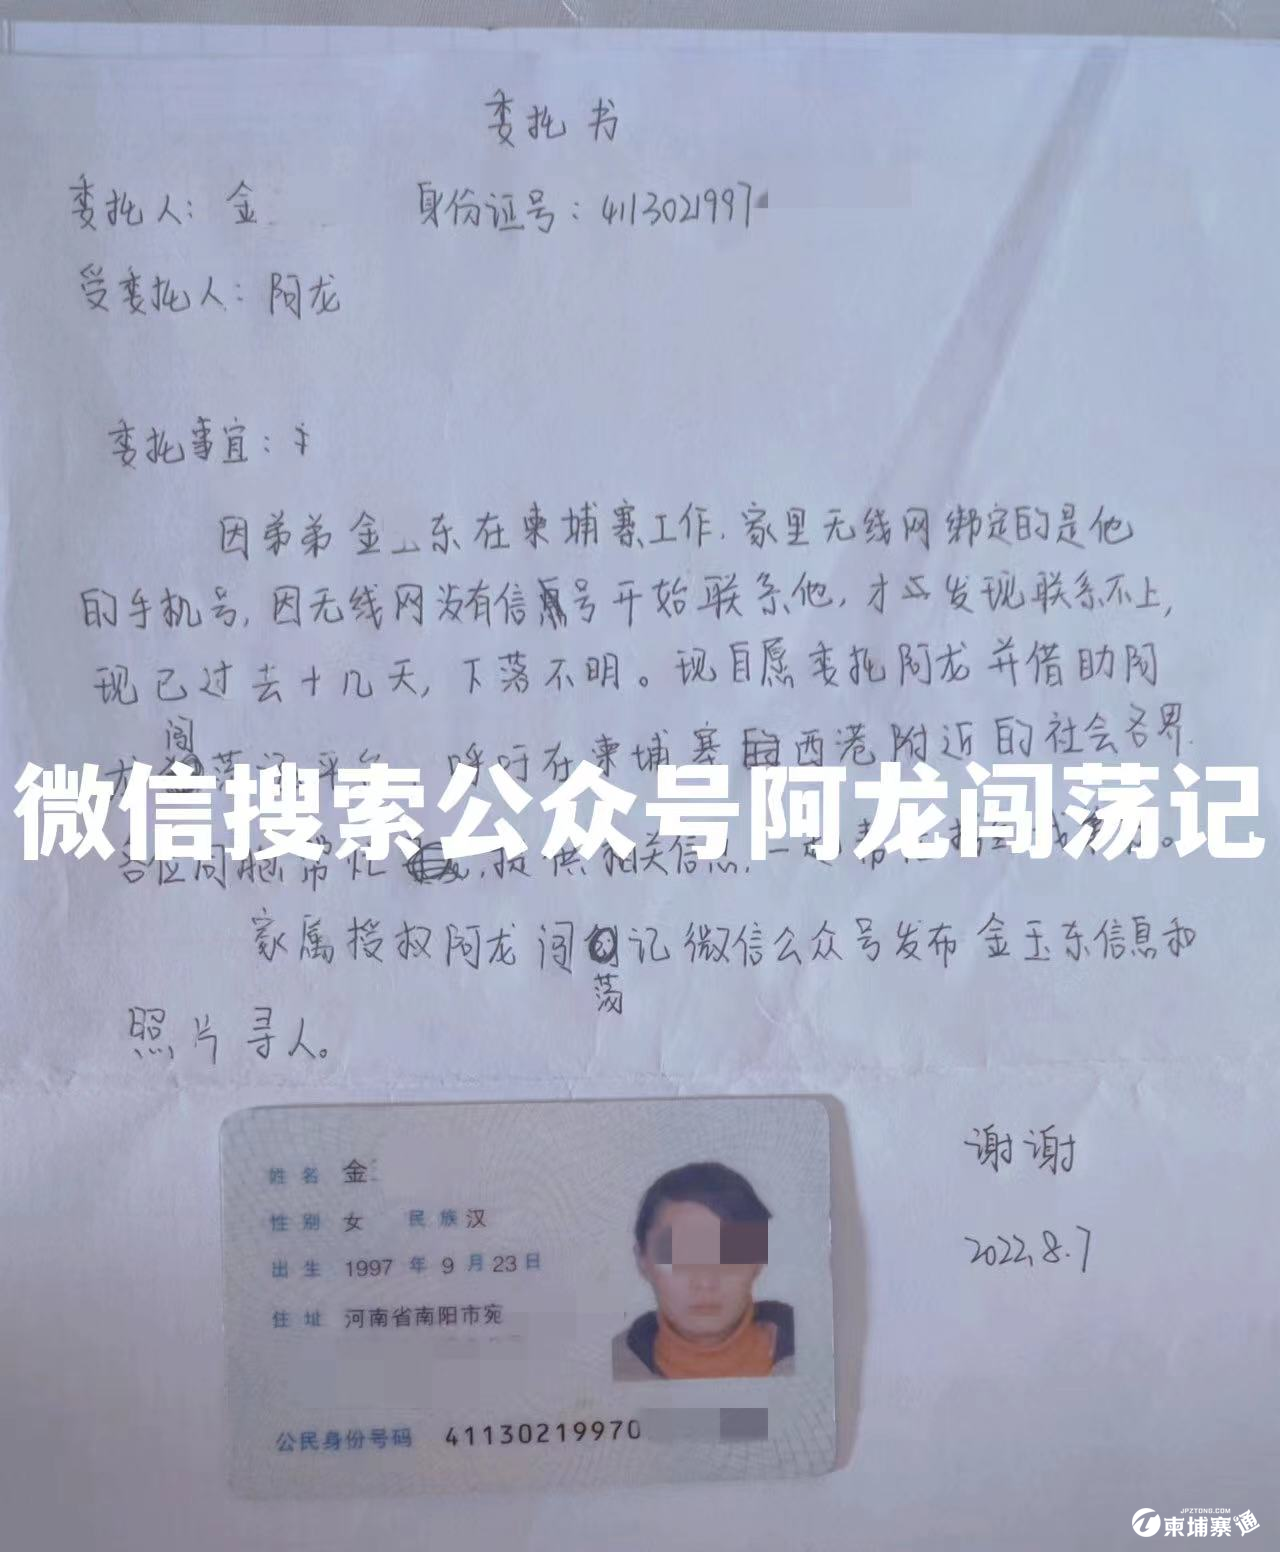 委托书
委托人：金 身份证号：4113021997
受委托人：阿龙
委托事宜：
因弟弟金 东在柬埔寨工作，家里无线网绑定的是他
的手机号，因无线网没有信号开始联系他，才发现联系不上，
现已过去十几天，下落不明。现自愿委托阿龙并借助阿
龙闯荡记平台，呼吁在柬埔寨西港附近的社会各界
微信搜索公众号阿龙闯荡记
各位同胞帮忙，提供相关信息，一起帮忙
家属授权阿龙闯荡记微信公众号发布金玉东信息和
照片寻人。
谢谢
2022.8.7
姓名 金
性别 女 民族 汉
出生 1997年9月23日
住址 河南省南阳市宛
公民身份号码 41130219970
JPZTONG.COM
柬埔寨通